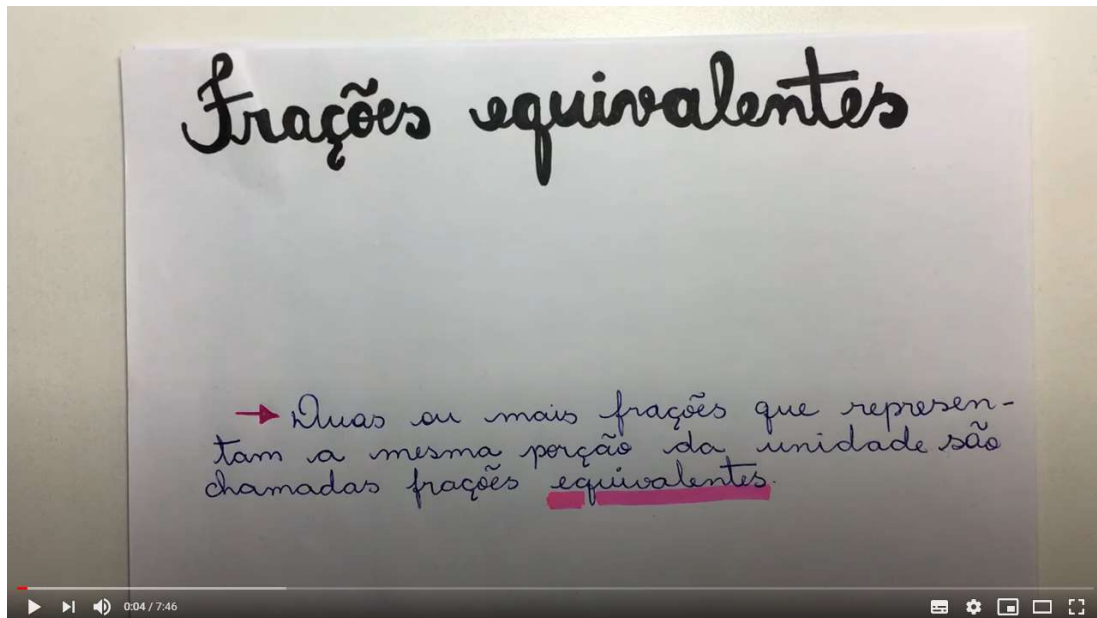 Frações equivalentes
→ Duas ou mais frações que represen-
tam a mesma porção da unidade são
chamadas frações equivalentes.
0:04 / 7:46